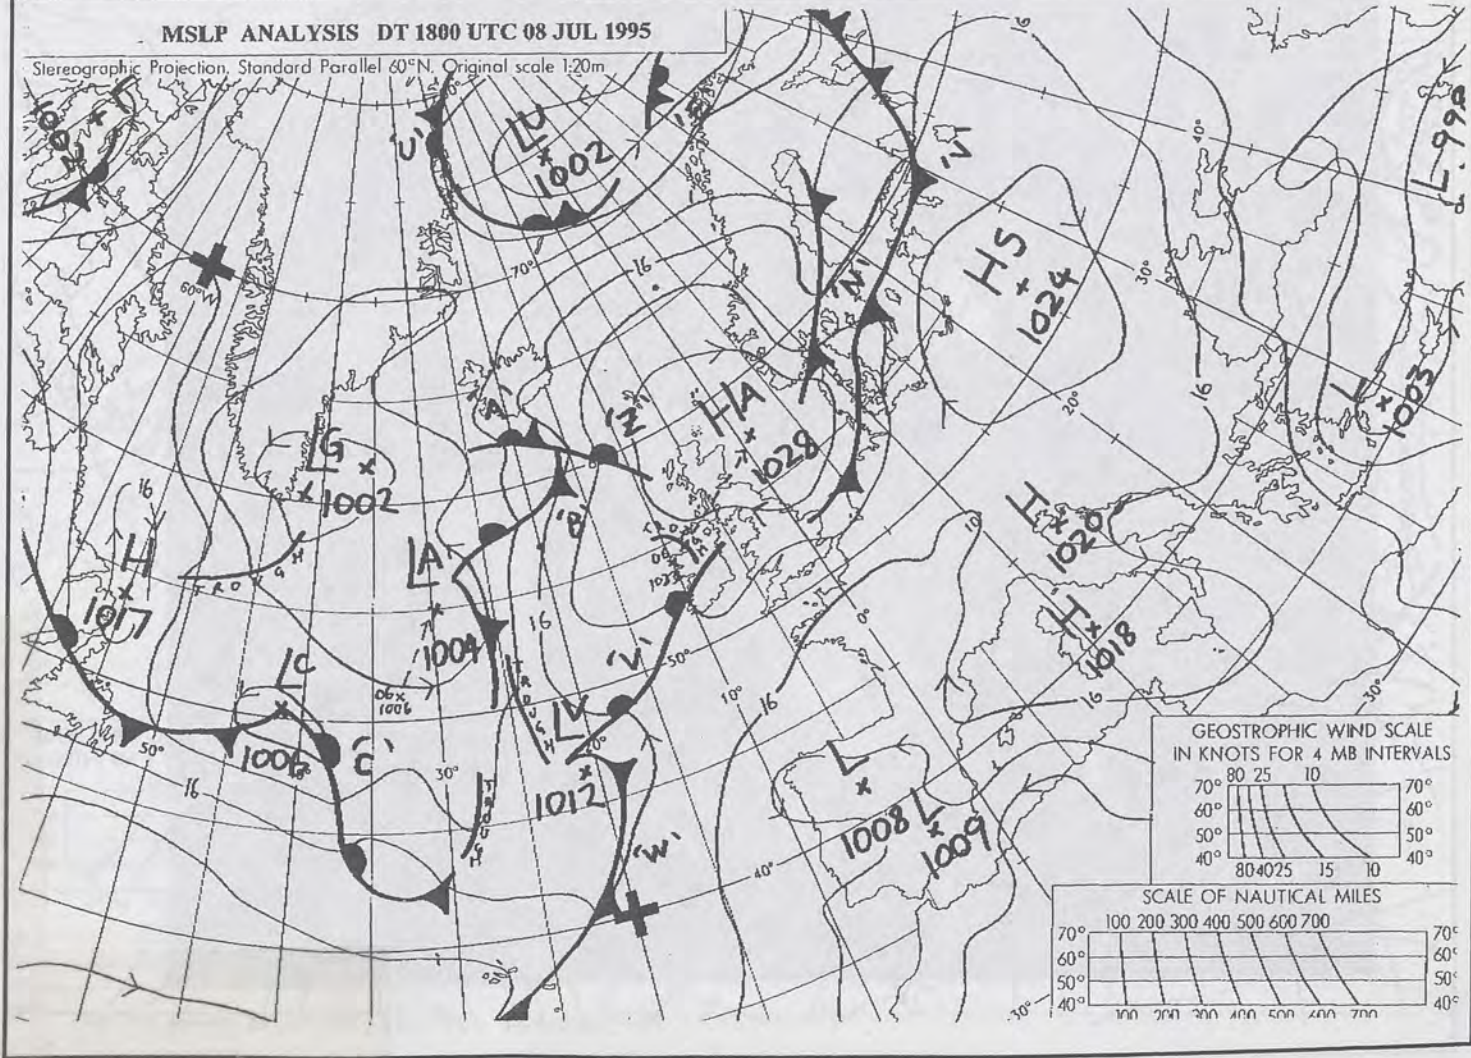 MSLP ANALYSIS DT 1800 UTC 08 JUL 1995
Stereographic Projection, Standard Parallel 60°N. Original scale 1:20m
16
40°
L 998
'U'
LU
1002
'V'
60°
70°
16
'N'
HS
1024
30°
L
1003
'A'
'Z'
HA
1028
20°
16
LG
1002
16
H
1017
TROUGH
'B'
LA
1004
TROUGH
06
1023
10°
H
1020
H
1018
0°
LC
1006
06
1006
16
'V'
50°
TROUGH
LV
20°
1012
10°
16
16
30°
50°
'C'
16
30°
TROUGH
'W'
L
1008
L
1009
40°
GEOSTROPHIC WIND SCALE
IN KNOTS FOR 4 MB INTERVALS
80 25 10
70° 70°
60° 60°
50° 50°
40° 40°
80 40 25 15 10
SCALE OF NAUTICAL MILES
100 200 300 400 500 600 700
70° 70°
60° 60°
50° 50°
40° 40°
100 200 300 400 500 600 700
30°